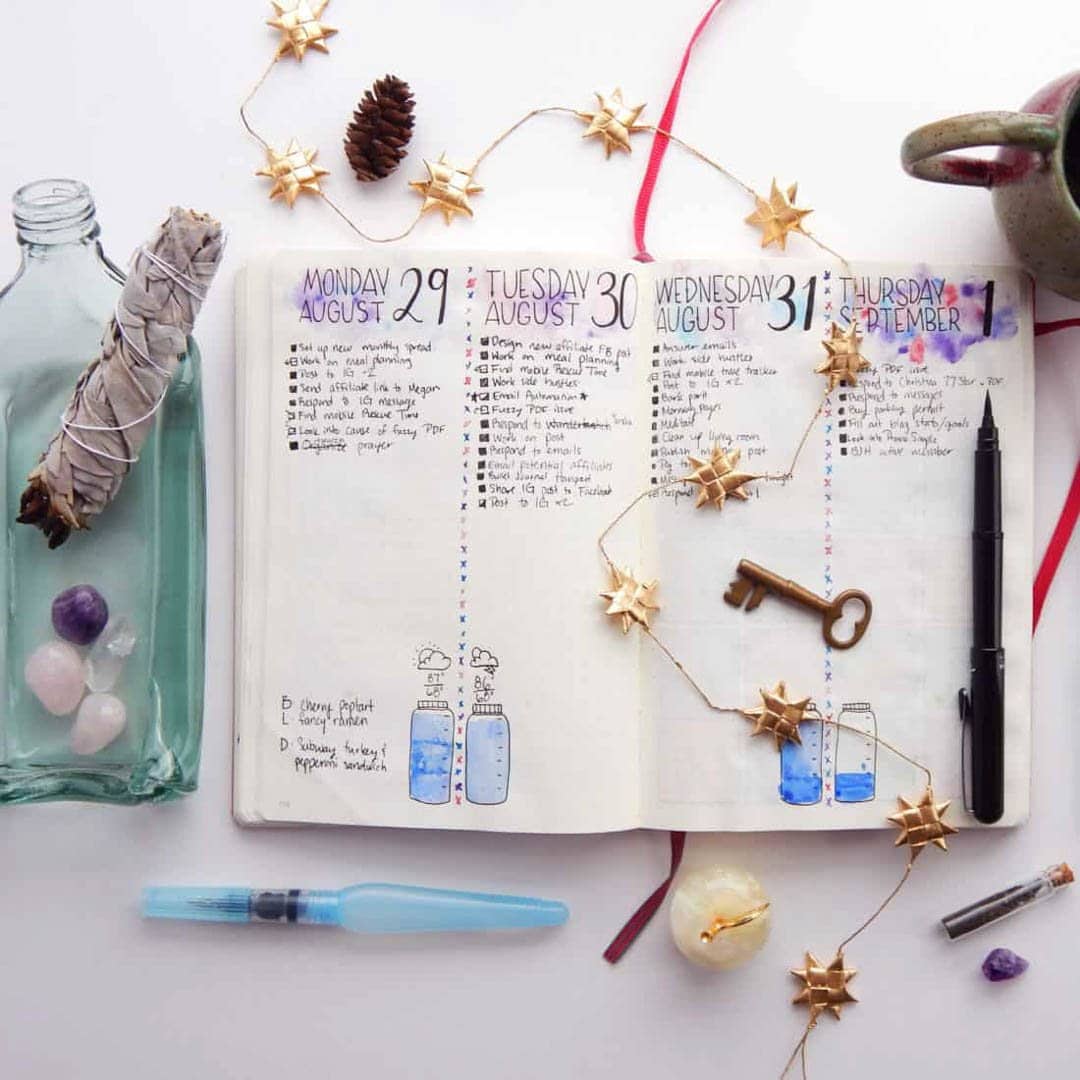 MONDAY 29
AUGUST
Set up new monthly spread
Work on meal planning
Post to IG ×2
Send affiliate link to Megan
Respond to IG message
Find mobile Rescue Time
Look into cause of fuzzy PDF
prayer
87°
68°
B cherry poptart
L fancy ramen
D Subway turkey &
pepperoni sandwich
TUESDAY 30
AUGUST
Design new affiliate FB post
Work on meal planning
Find mobile Rescue Time
Work side hustles
Email Automation
Fuzzy PDF issue
Respond to
Work on post
Respond to emails
Email potential affiliates
Bullet Journal
Share IG post to Facebook
Post to IG ×2
86
68°
WEDNESDAY 31
AUGUST
Answer emails
Work side hustles
Find mobile time tracker
Post to IG ×2
Morning pages
Meditate
Clean up living room
Publish post
THURSDAY 1
SEPTEMBER
PDF issue
Respond to Christina
Respond to messages
Pay parking permit
Fill out blog stats/goals
Look into
BJH active member